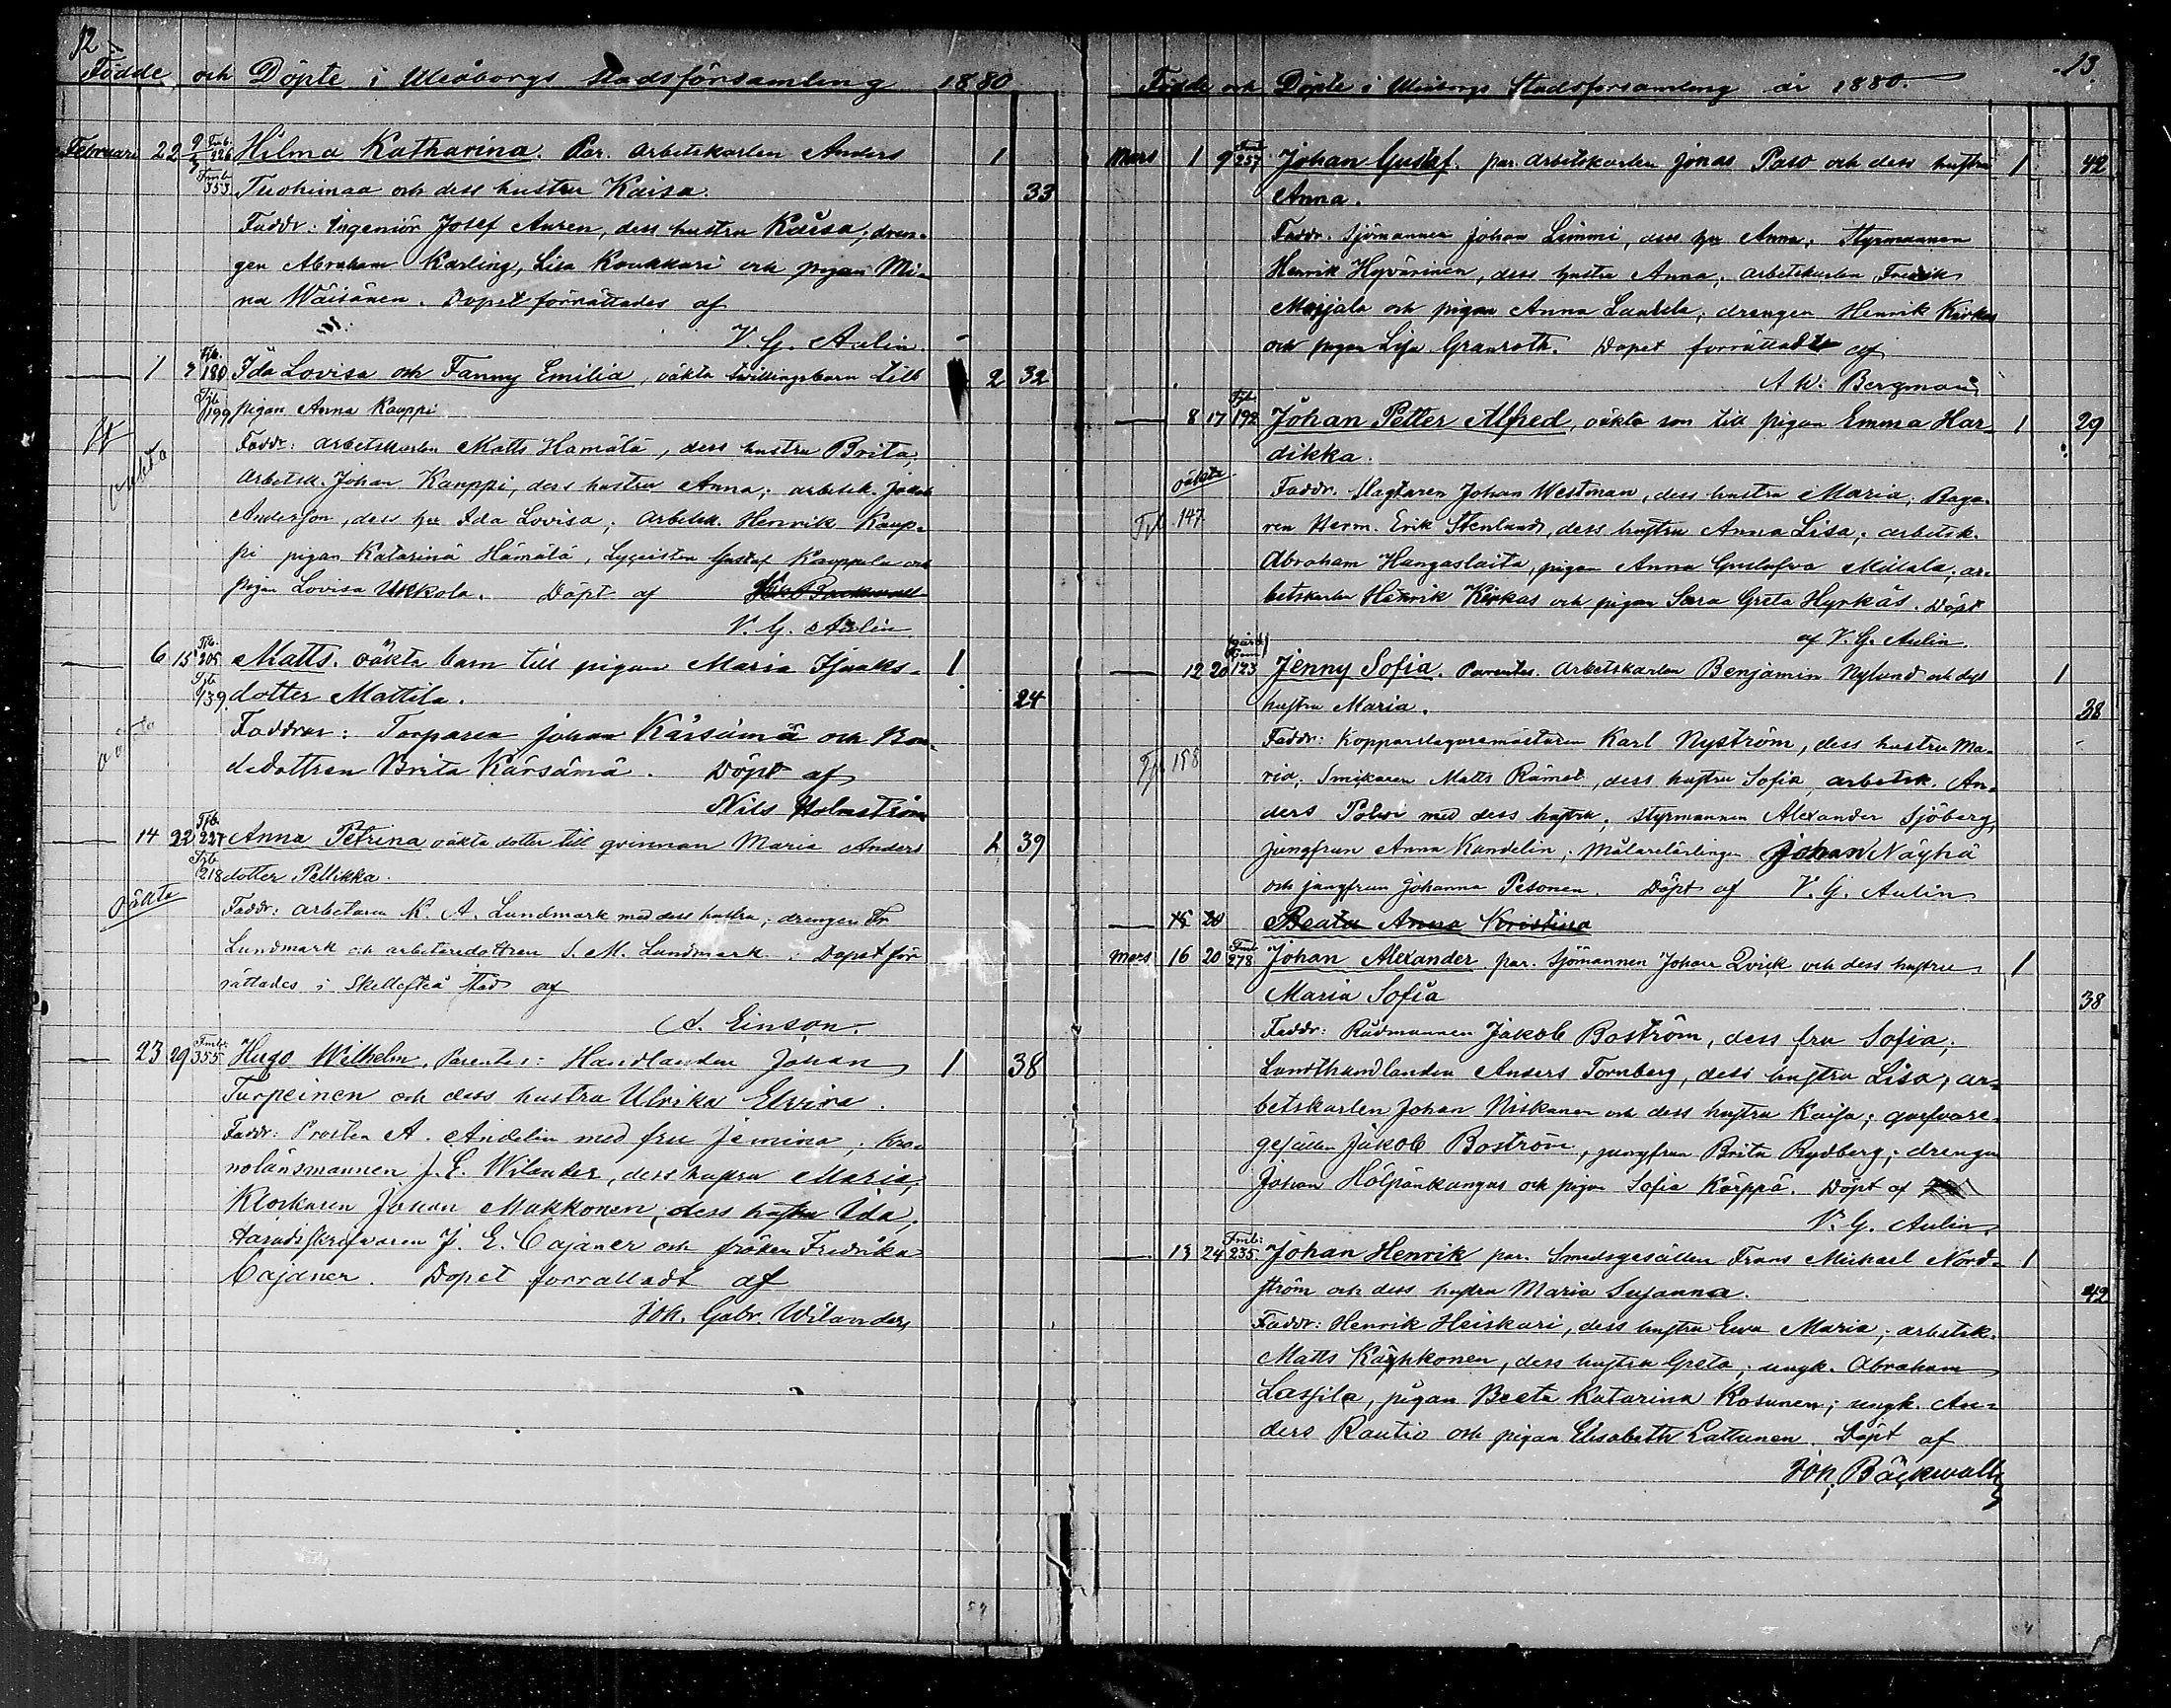 12
Födde och Döpte i Uleåborgs stadsförsamling 1880
Februari 22 9/3 Fmb. 226 Hilma Katharina. Par. arbetskarlen Anders 1
Fmb 353 Tuohimaa och dess hustru Kaisa. 33
Faddr: Ingeniör Josef Auren, dess hustru Kaisa; dren-
gen Abraham Karling, Lisa Koukkari och pigan Mi-
na Wäisänen. Dopet förrättades af
V. G. Aulin.
1 7 Fjb. 180 Ida Lovisa och Fanny Emilia, oäkta tvillingsbarn till 2 32
Fjb 199 pigan Anna Kauppi
Faddr: arbetskarlen Matts Hämälä, dess hustru Brita,
oäkta
arbetsk. Johan Kauppi, dess hustru Anna; arbetsk. Jakob
Anderson, dess hu Ida Lovisa; arbetsk. Henrik Kaup-
pi pigan Katarina Hämälä, Lyceisten Gustaf Kauppila och
pigan Lovisa Ukkola. Döpt af
V. G. Aulin
6 15 Fjb. 205 Matts. oäkta barn till pigan Maria Isaaks- 1
Fjb 139 dotter Mattila. 24
oäkta
Faddrar: Torparen Johan Kärsämä och Bon-
dedottren Brita Kärsämä. Döpt af
Nils Holmström
14 22 Fjb. 227 Anna Petrina oäkta dotter till qvinnan Maria Anders 1 39
Fjb 218 dotter Pellikka.
oäkta
Faddr: arbetaren K. A. Lundmark med dess hustru; drengen Fr
Lundmark och arbetaredottren S. M. Lundmark. Dopet för
rättades i Skellefteå stad af
A. Einson.
23 29 Fmb: 355 Hugo Wilhelm. Parentes: Handlanden Johan 1 38
Turpeinen och dess hustru Ulrika Elvira.
Faddr: Prosten A. Andelin med fru Jemina; Kro-
nolänsmannen J. E. Wilander, dess hustru Maria,
Klockaren Johan Makkonen, dess hustru Ida,
Häradsskrifvaren J. E. Cajaner och fröken Fredrika
Cajaner. Dopet förrättadt af
Joh. Gabr. Wilander,
13.
Födde och Döpte i Uleåborgs Stadsförsamling år 1880.
Mars 1 9 Fmb 257 Johan Gustaf. par. arbetskarlen Jonas Paso och dess hustru 1 42
Anna.
Faddr. Sjömannen Johan Limmi, dess hu Anna; Styrmannen
Henrik Hyvärinen, dess hustru Anna; arbetskarlen Fredrik
Marjala och pigan Anna Laurila; drengen Henrik Kirkas
och pigan Lisa Granroth. Dopet förrättadt af
A. W. Bergman
8 17 Fjb. 192 Johan Petter Alfred, oäkta son till pigan Emma Har- 1 29
dikka.
oäkta
Faddr. Slagtaren Johan Westman, dess hustru Maria, Baga-
Fjb 147 ren Herm. Erik Stenlund, dess hustru Anna Lisa; arbetsk.
Abraham Hangaslaita, pigan Anna Gustafva Mällala, ar-
betskarlen Henrik Kirkas och pigan Sara Greta Hyrkäs. Döpt
af V. G. Aulin.
12 20 123 Jenny Sofia. Parentes. Arbetskarlen Benjamin Nylund och dess 1
hustru Maria. 38
Faddr: Kopparslagaremästaren Karl Nyström, dess hustru Ma-
198 ria; Smikaren Matts Rämet, dess hustru Sofia arbetsk. An-
ders Polvi med dess hustru; styrmannen Alexander Sjöberg,
jungfrun Anna Kandelin; Målarelärlingen Johan Näyhä
och jungfrun Johanna Pesonen. Döpt af V. G. Aulin
15 20 Beata Anna Kristina
Mars 16 20 Fmb 278 Johan Alexander par. Sjömannen Johan Qvick och dess hustru 1
Maria Sofia 38
Faddr: Rådmannen Jakob Boström, dess fru Sofia;
Landthandlanden Anders Tornberg, dess hustru Lisa; ar-
betskarlen Johan Niskanen och dess hustru Kaisa; garfvare-
gesällen Jakob Boström, jungfrun Brita Rydberg; drengen
Johan Hölpänkangas och pigan Sofia Kärppä. Döpt af
V. G. Aulin,
13 24 Fmb: 235 Johan Henrik par. Smedsgesällen Frans Michael Nord- 1
ström och dess hustru Maria Susanna. 42
Faddr: Henrik Heiskari, dess hustru Eva Maria; arbetsk.
Matts Käyhkonen, dess hustru Greta; ungk. Abraham
Lassila, pigan Beata Katarina Kosunen; ungk. An-
ders Rautio och pigan Elisabeth Lattunen. Döpt af
Joh. Bäckwall